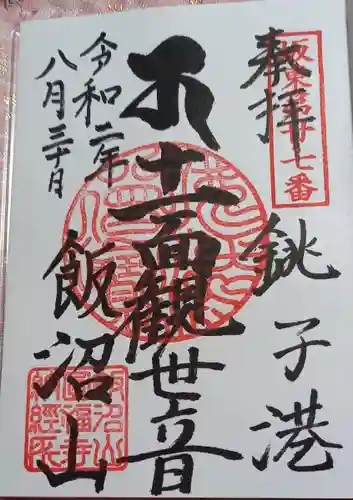 奉拝
坂東第廿七番
銚子港
十一面観世音
飯沼山
令和二年
八月三十日